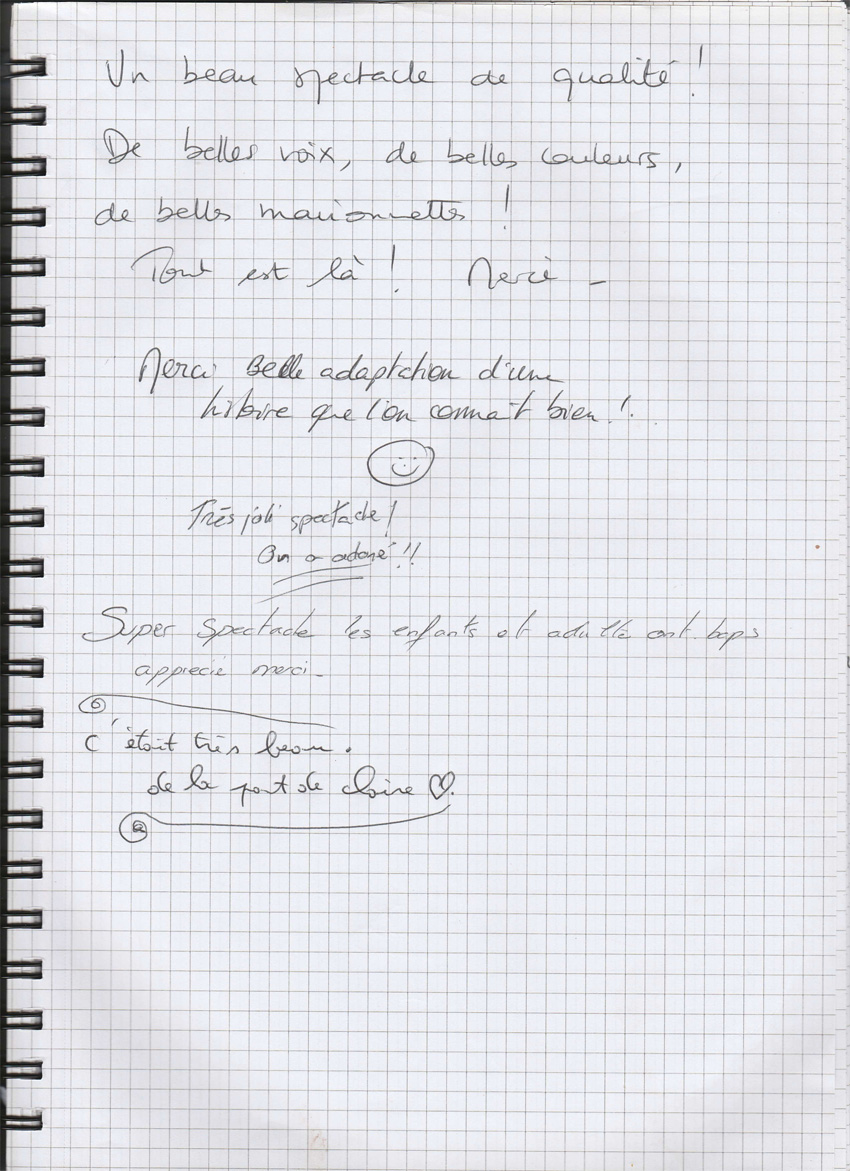 Un beau spectacle de qualité !
De belles voix, de belles couleurs,
de belles marionnettes !
Tout est là ! Merci -
Merci Belle adaptation d'une
histoire que l'on connaît bien !
Très joli spectacle !
On a adoré !!
Super spectacle les enfants et adulte ont bcps
apprecié merci -
C'était très beau.
de la part de claire ♡.